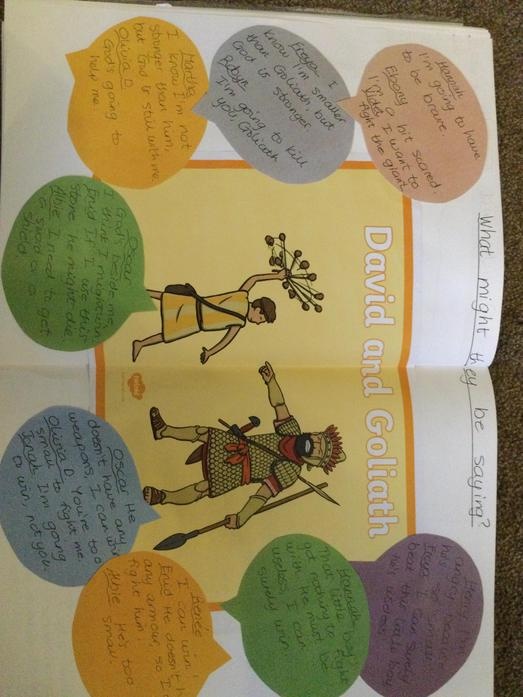 What might they be saying?
David and Goliath
Hannah
I'm going to have
to be brave.
Ebony
I a bit scared.
I want to
fight the giant
Freya I
know I'm smaller
than Goliath, but
God is stronger
Robyn
I'm going to kill
you, Goliath
Martha
I know I'm not
stronger than him,
but God is still with me.
Olivia D
God's going to
help me.
Oscar
God's beside me,
I think I might win
Enid If I use this
stone he might die.
Albie I need to get
a sword or
shield
Oscar He
doesn't have any
weapons, I can win
Olivia D You're too
small to fight me.
Jonah I'm going
to win, not you.
Renee
I can win!
Enid He doesn't
any armour, so I
fight him.
Albie He's too
small.
Hannah
That little boy's
got nothing to fight
with. He must be
useless, I can
surely win
Freya I can surely
beat this little boy